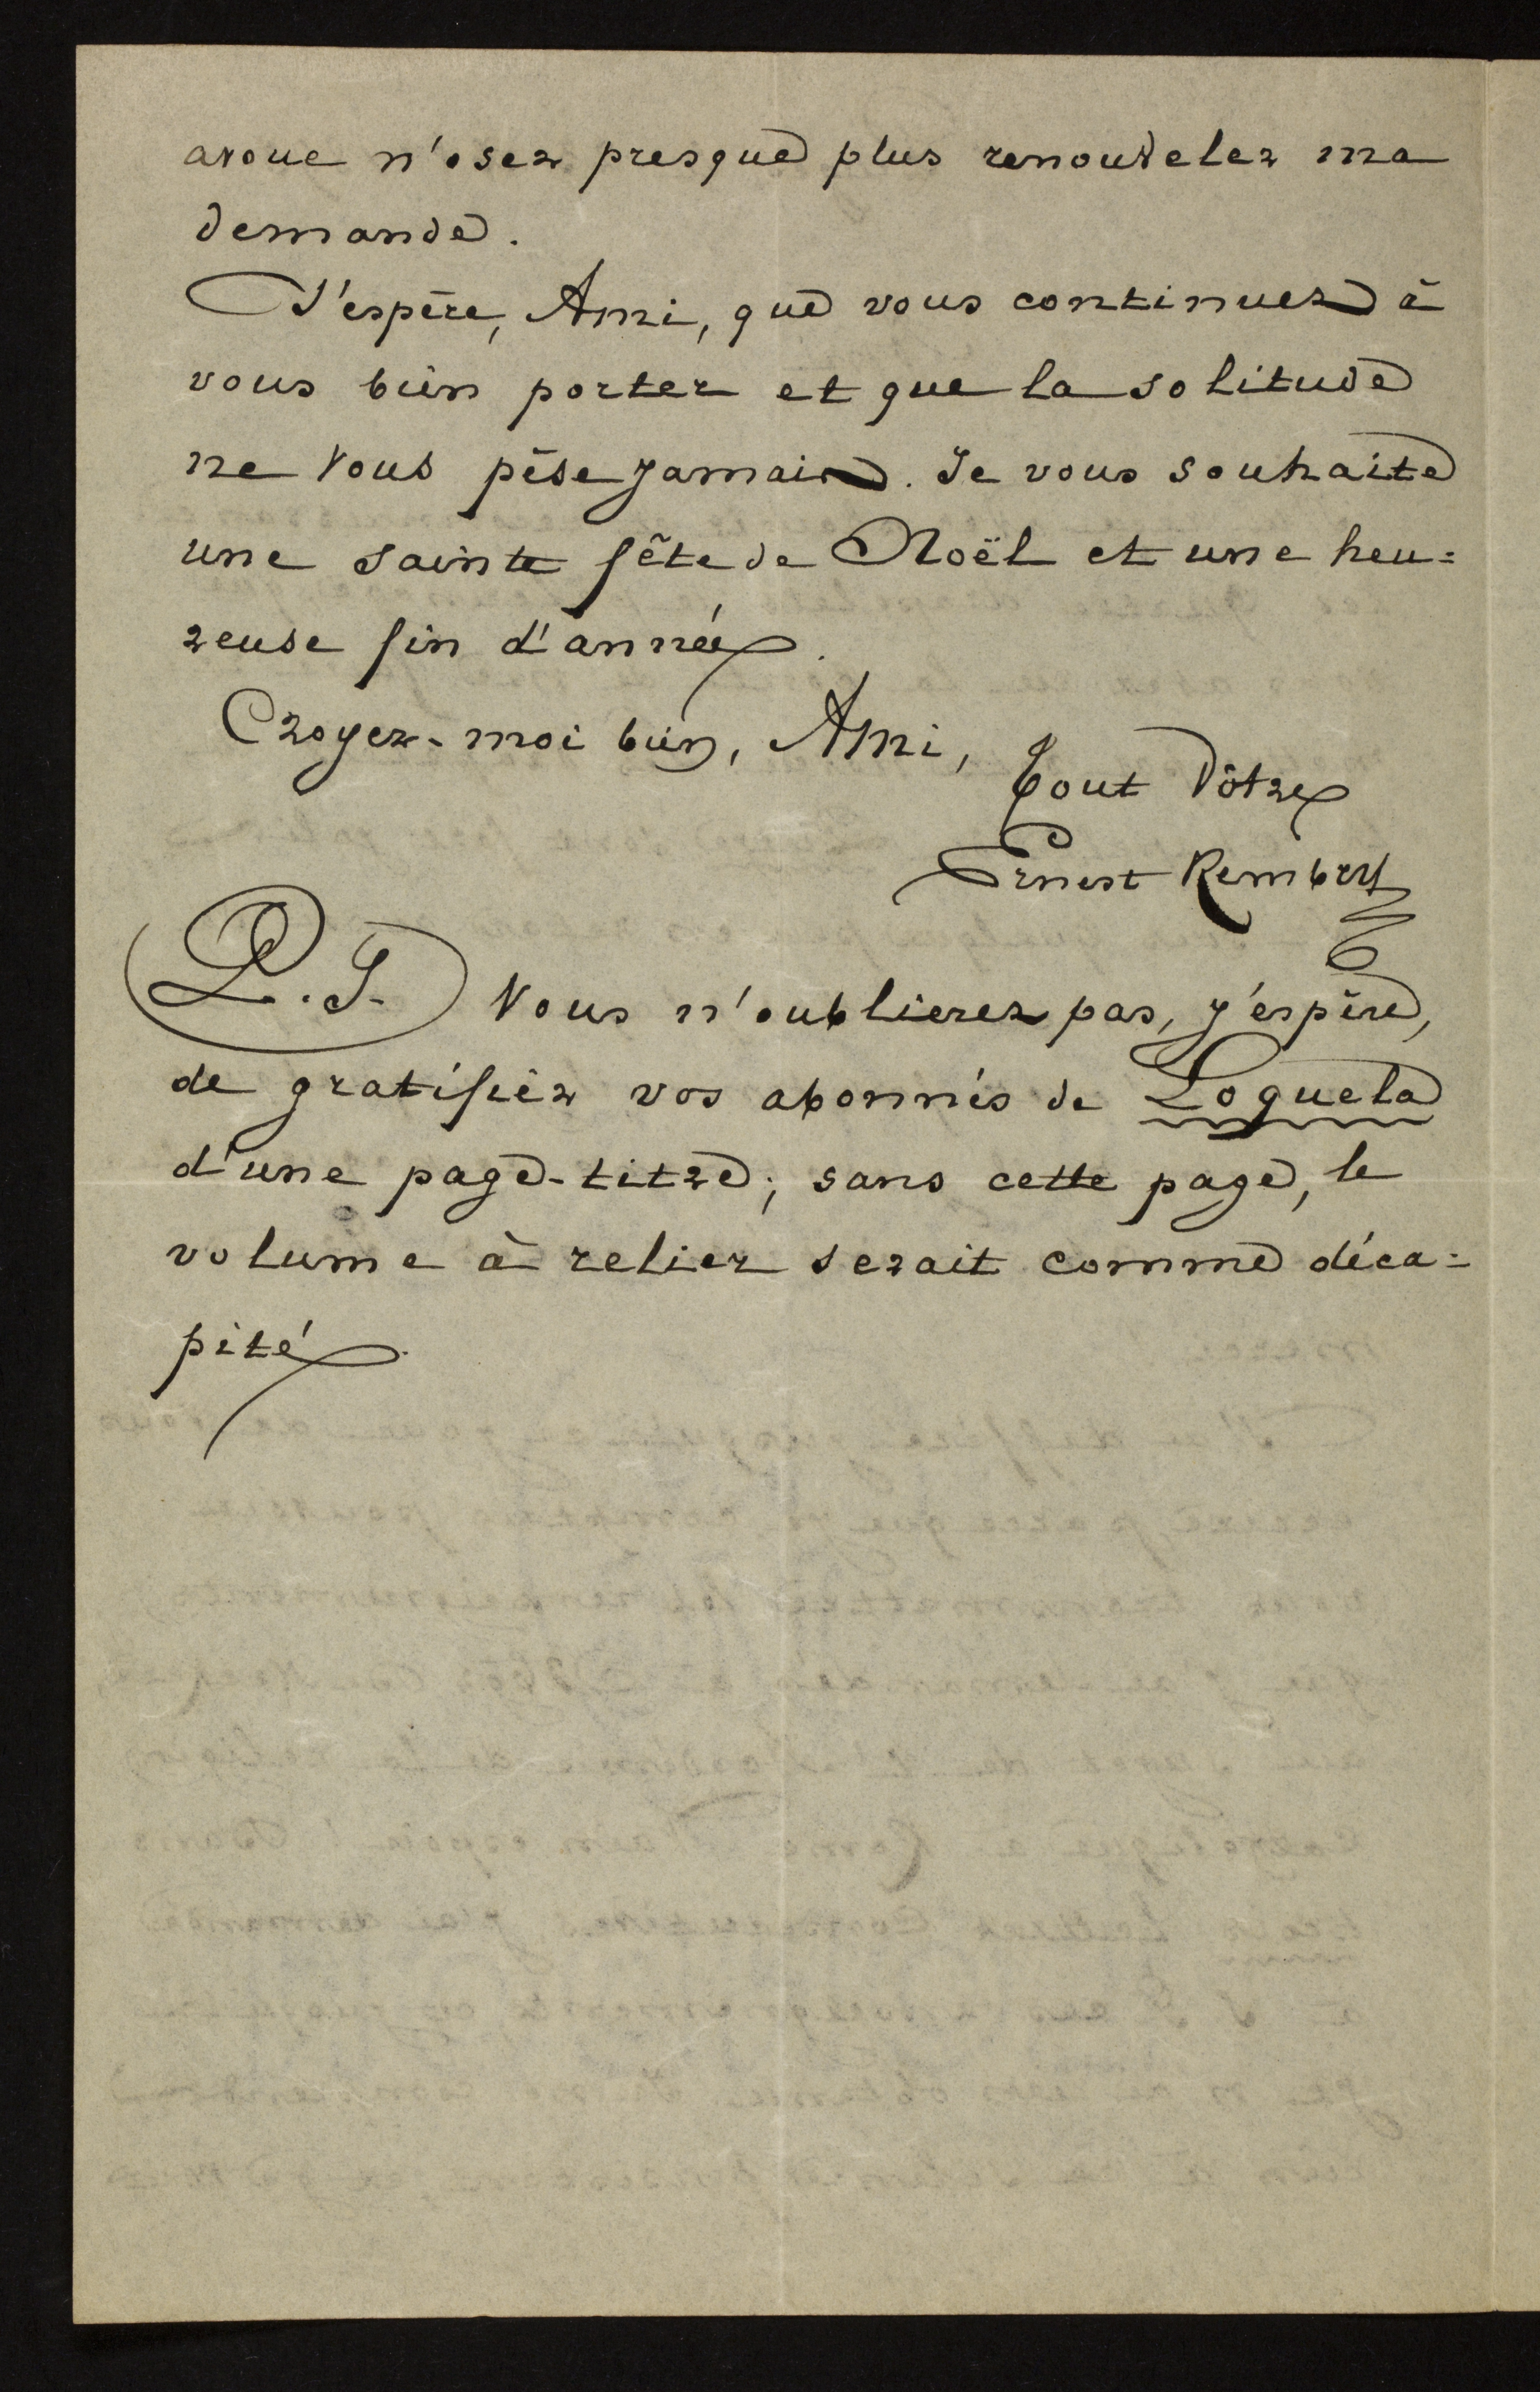 avoue n'oser presque plus renouveler ma
demande.
J'espère, Ami, que vous continuez à
vous bien porter et que la solitude
ne vous pèse jamais. Je vous souhaite
une sainte fête de Noël et une heu=
reuse fin d'année.
Croyez-moi bien, Ami,
Tout Vôtre
Ernest Rembry
P.S. Vous n'oublierez pas, j'espère,
de gratifier vos abonnés de Loquela
d'une page-titre; sans cette page, le
volume à relier serait comme déca=
pité.